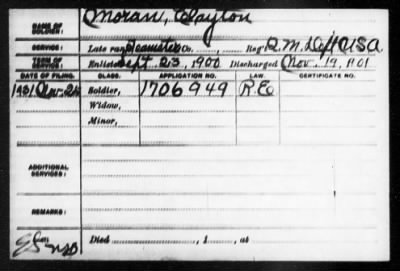 NAME OF SOLDIER: Moran, Clayton
SERVICE: Late rank Teamster Co. ......, ...... Reg't Q. M. Dept USA
TERM OF SERVICE: Enlisted Sept. 23, 1900 Discharged Nov. 19, 1901
DATE OF FILING. CLASS. APPLICATION NO. LAW. CERTIFICATE NO.
1931 Apr. 24 Soldier, 1706949 R.E.
Widow,
Minor,
ADDITIONAL SERVICES:
REMARKS:
Died ......, 1......, at